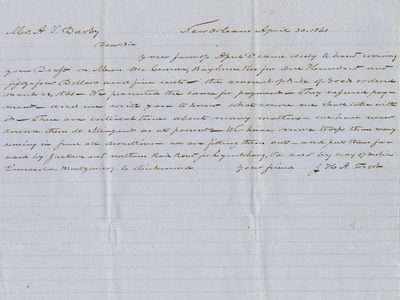 Mr. A. T. Darby New Orleans April 30. 1861
Dear Sir
Your favor of April 2d came duly to hand covering
your Draft on Messrs McLemore, Rayburn & Co for One Hundred and
fifty four Dollars and five cents - the amount of Bill of Goods ordered
March 12, 1861 - We presented the same for payment - They refused pay-
ment - and we wait you to know what course we shall take with
it - There are critical times about money matters - we have never
known them so stringent as at present - We have more troops than many
coming in from all directions - we are fitting them out - and put them for-
ward by Jackson and northern Rail Road for Lynchburg, Va. and by way of Mobile
Pensacola, Montgomery to Richmond Your friend J H A Frost